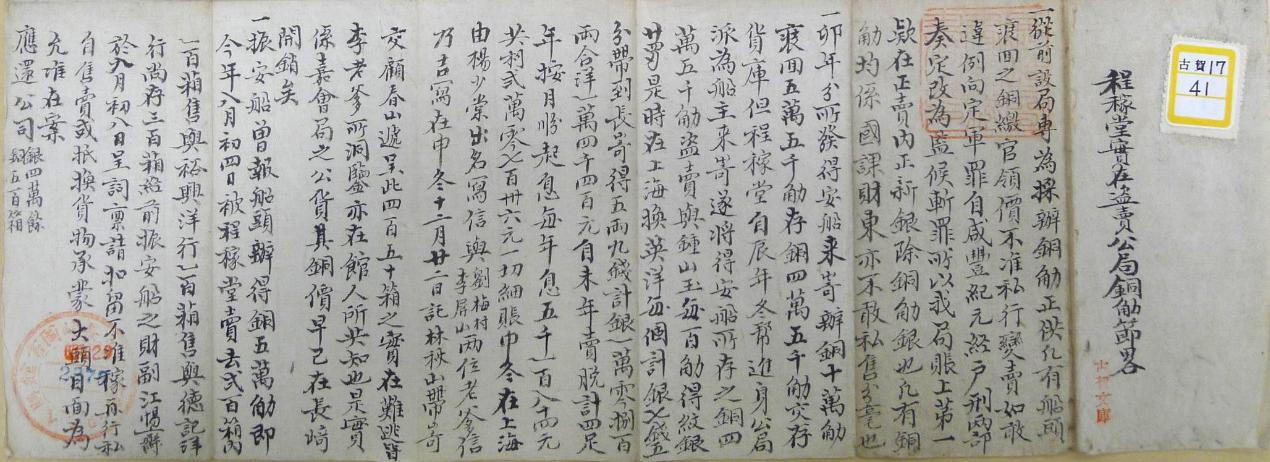 古賀17
41
程稼堂實在盜賣公局銅觔節畧
古賀文庫
一從前設局專為採辦銅觔正供凡有船頭
滾回之銅繳官領價不准私行變賣如敢
違例向定軍罪自咸豐紀元経戶刑兩部
奏定改為監候斬罪所以我局賬上第一
欵在正賣內正新銀除銅觔銀也凡有銅
觔均係國課財東亦不敢私售分毫也
一卯年分所發得安船來嵜辦銅十萬觔
滾回五萬五千觔存銅四萬五千觔交存
貨庫但程稼堂自辰年冬帮進身公局
派為船主來嵜遂將得安船所存之銅四
萬五千觔盜賣與鍾山玉每百觔得紋銀
廿両是時在上海換英洋每個計銀七錢五
分帶到長嵜得五両九錢計銀一萬零捌百
兩合洋一萬四千四百元自未年賣脫計四足
年按月勝起息每年息五千一百八十四元
共利弍萬零七百卅六元一切細賬巾冬在上海
由楊少棠出名寫信與劉梅村李屏山两位老爺信
乃吉寫在申冬十二月廿二日託林秋山帶嵜
交顧春山遞呈此四百五十箱之實在難逃
李老爹所洞鑒亦在館人所共知也是實
係嘉會局之公貨其銅價早已在長崎
開銷矣
一振安船曾報船頭辦得銅五萬觔即
今年八月初四日被程稼堂賣去弍百箱內
一百箱售與裕興洋行一百箱售與德記洋
行尚存三百箱経前振安船之財副江賜爵
於八月初八日呈詞禀請扣留不准稼亦行私
自售賣或抵換貨物承蒙大頭目面為
允准在案
應還公司銀四萬餘銅五百箱